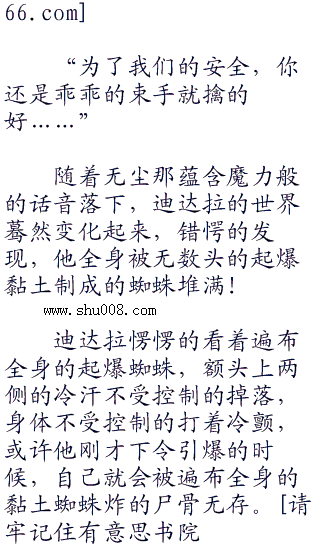 66.com]
“为了我们的安全，你
还是乖乖的束手就擒的
好……”
随着无尘那蕴含魔力般
的话音落下，迪达拉的世界
蓦然变化起来，错愕的发
现，他全身被无数头的起爆
黏土制成的蜘蛛堆满！
www.shu008.com
迪达拉愣愣的看着遍布
全身的起爆蜘蛛，额头上两
侧的冷汗不受控制的掉落，
身体不受控制的打着冷颤，
或许他刚才下令引爆的时
候，自己就会被遍布全身的
黏土蜘蛛炸的尸骨无存。[请
牢记住有意思书院